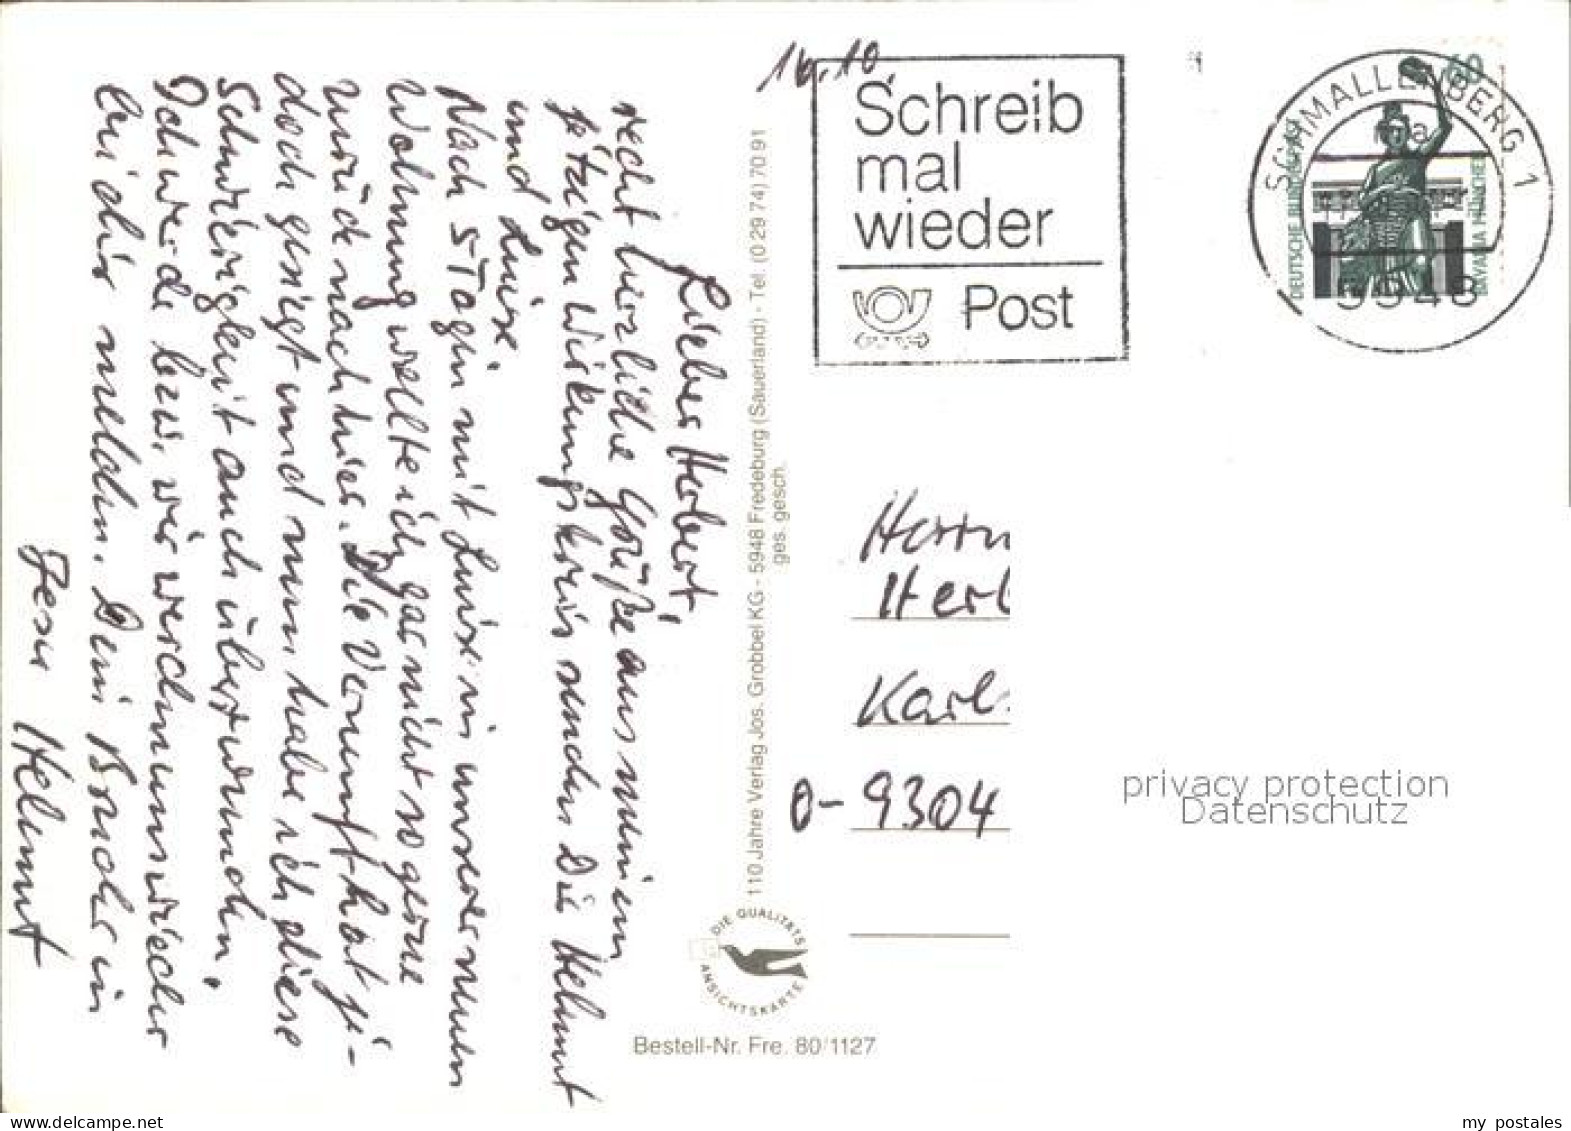 16.10.
Lieber Herbert,
recht herzliche Grüße aus meinem
jetzigen Wirkungskreis senden Dir Helmut
und Luise.
Nach 5 Tagen mit Luise in unserer neuen
Wohnung wollte ich gar nicht so gerne
zurück nach hier. Die Vernunft hat je-
doch gesiegt und nun habe ich diese
Schwierigkeit auch überwunden.
Ich werde bzw. wir werden uns wieder
bei dir melden. Dein Bruder in
Jesu Helmut
110 Jahre Verlag Jos. Grobbel KG - 5948 Fredeburg (Sauerland) - Tel. (0 29 74) 70 91
ges. gesch.
DIE QUALITÄTS
ANSICHTSKARTE
Bestell-Nr. Fre. 80/1127
Schreib
mal
wieder
Post
SCHMALLENBERG 1
a
5948
60
DEUTSCHE BUNDESPOST
BAVARIA MÜNCHEN
Herrn
Herb
Karl
O-9304
privacy protection
Datenschutz
my postales